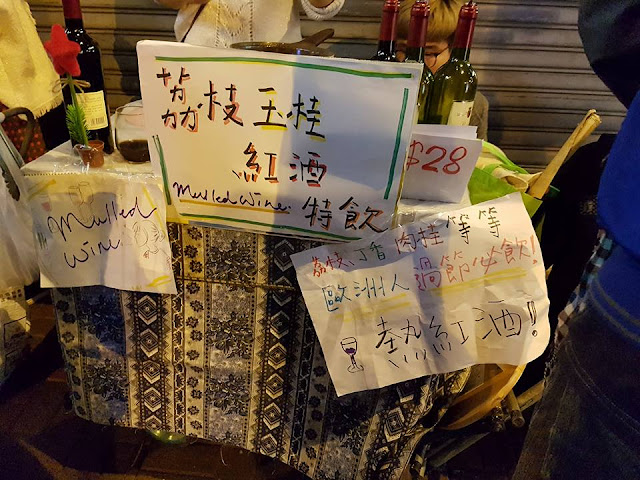 荔枝玉桂
紅酒
mulled wine. 特飲
$28
mulled
wine.
荔枝、丁香肉桂等等
歐洲人過節必飲!
熱紅酒!